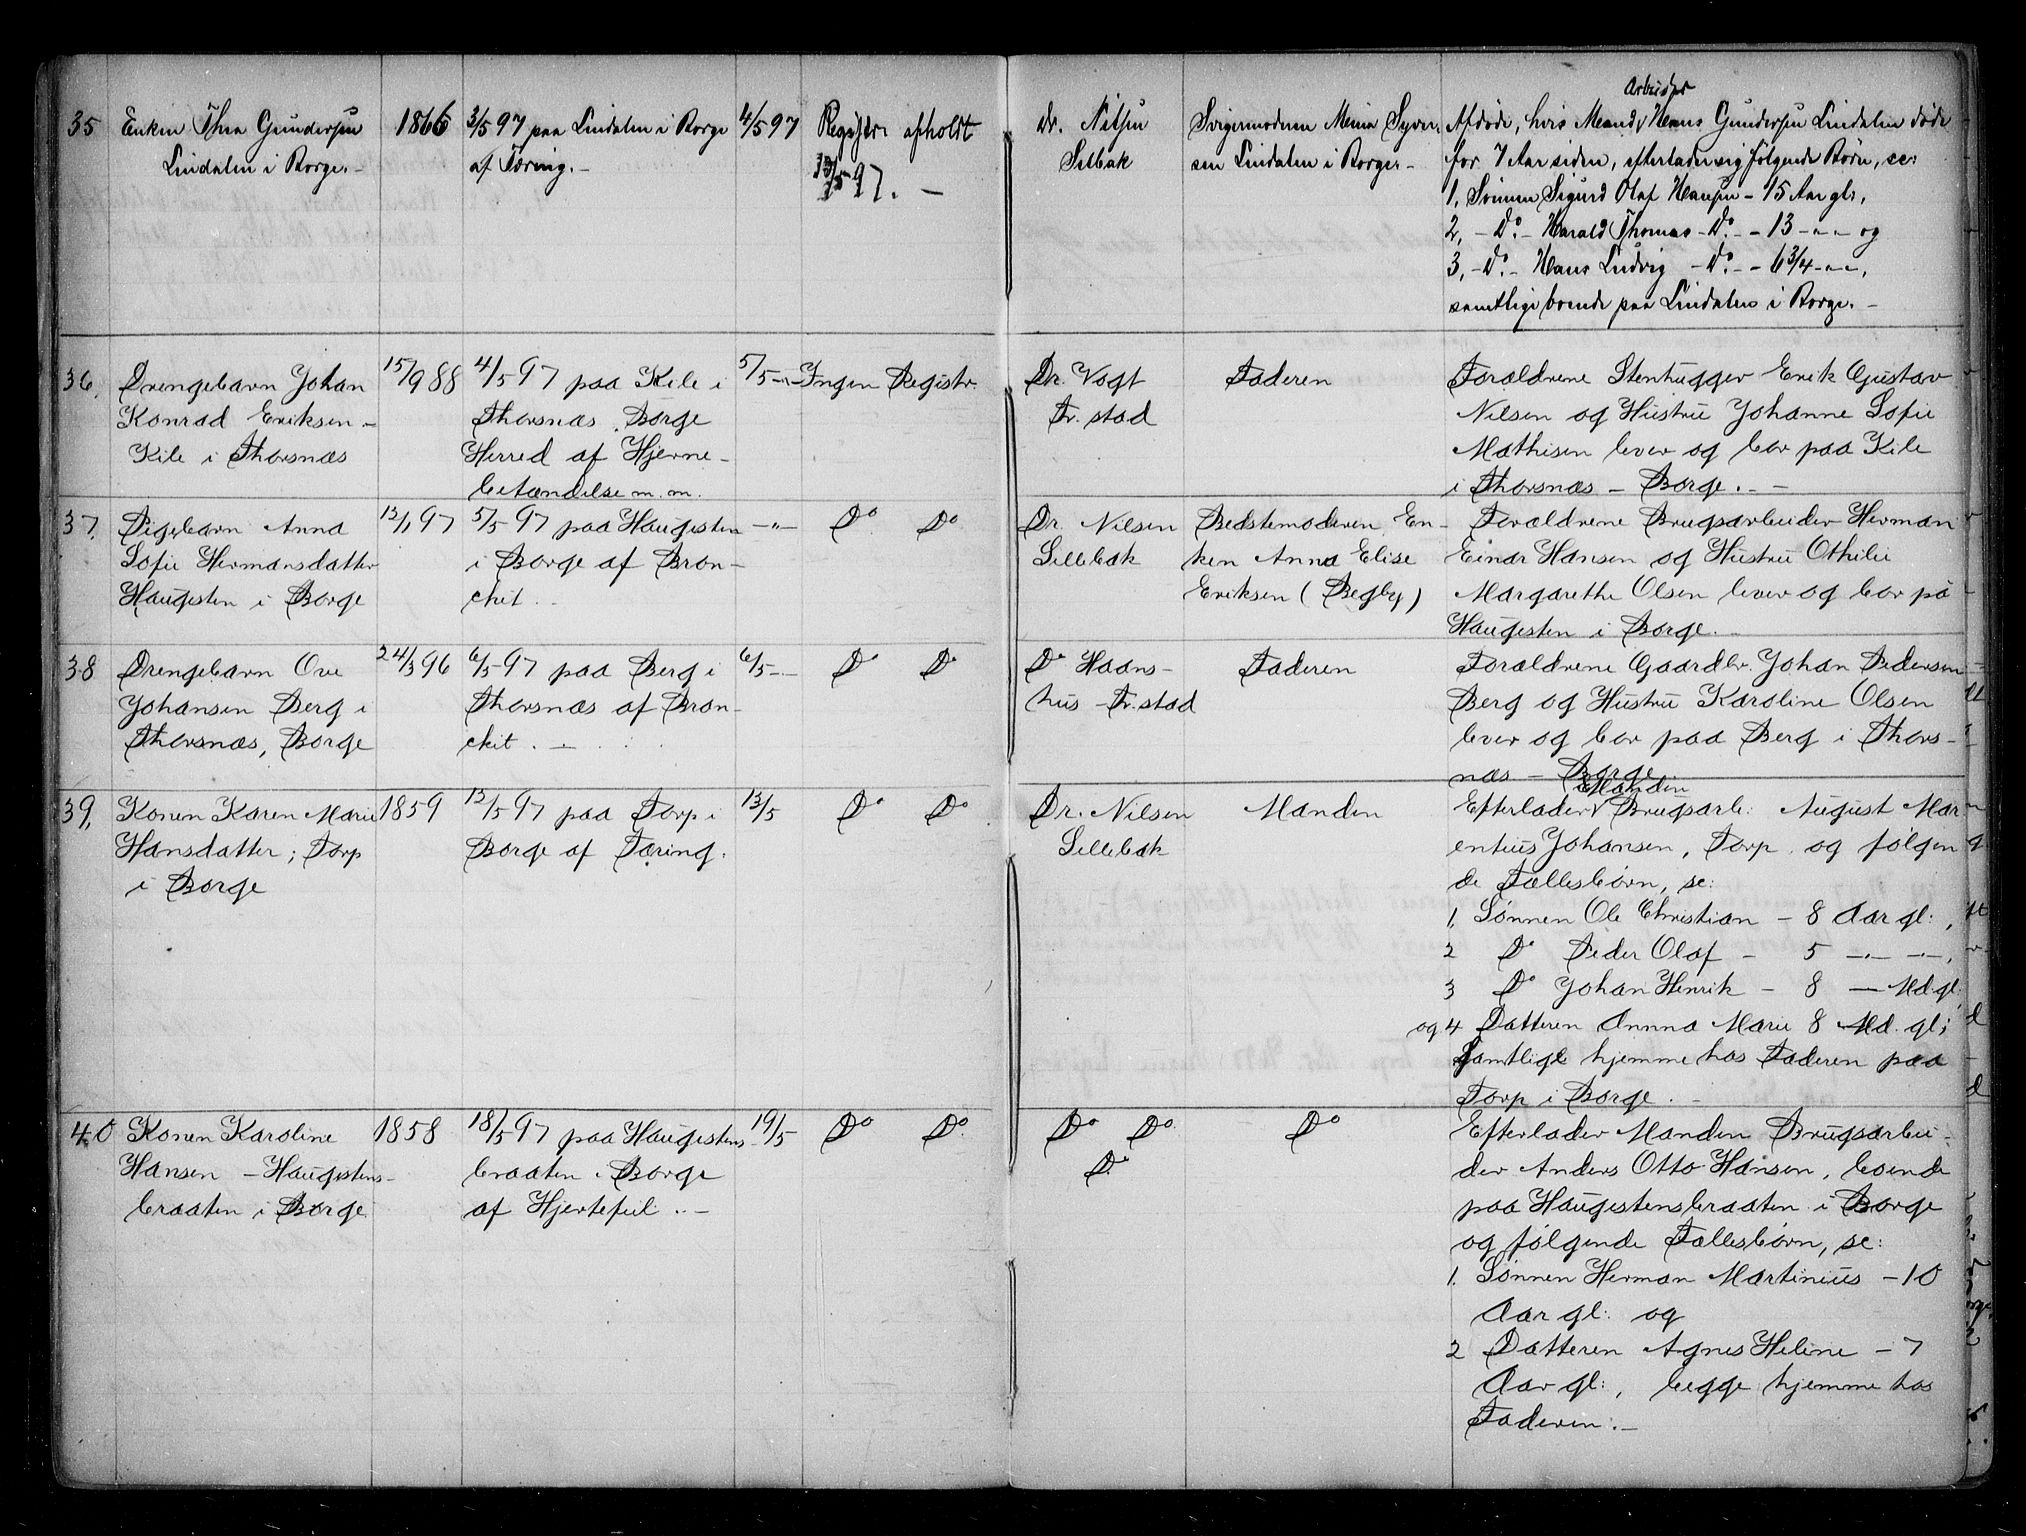 35 Enken Thea Gundersen
Lindalen i Borge. -
1866
3/5 97 paa Lindalen i Borge
af Tæring. -
4/5 97
Registr. afholdt
13/5 97. -
dr. Nilsen
Sellebak
Svigermoderen Mina Syver-
sen Lindalen i Borge. -
Arbeider
Afdøde, hvis Mand, Hans Gundersen Lindalen døde
for 7 Aar siden, efterlader sig følgende Børn, se:
1, Sønnen Sigurd Olaf Hansen - 15 Aar gl.,
2, - Do. - Harald Thomas - Do. - - 13 - „ - og
3, - Do. - Hans Ludvig - Do. - - 6 3/4 - „ -,
samtlige boende paa Lindalen i Borge. -
36, Drengebarn Johan
Konrad Eriksen -
Kile i Thorsnæs
15/9 88
4/5 97 paa Kile i
Thorsnæs, Borge
Herred af Hjerne-
betændelse m. m.
5/5 - „ -
Ingen Registr.
Dr. Vogt
Fr. stad
Faderen
Forældrene Stenhugger Erik Gustav
Nilsen og Hustru Johanne Sofie
Mathisen lever og bor paa Kile
i Thorsnæs - Borge. -
37, Pigebarn Anna
Sofie Hermansdatter
Haugesten i Borge
12/1 97
5/5 97 paa Haugesten
i Borge af Bron-
chit. -
- „ -
Do Do
Dr. Nilsen
Sellebak
Bedstemoderen En-
ken Anna Elise
Eriksen (Begby)
Forældrene Brugsarbeider Herman
Einar Hansen og Hustru Othilie
Margarethe Olsen lever og bor på
Haugesten i Borge. -
38 Drengebarn Ove
Johansen Berg i
Thorsnæs, Borge
24/3 96
6/5 97 paa Berg i
Thorsnæs af Bron-
chit. -
6/5 - -
Do Do
Do Haans-
hus - Fr. stad
Faderen
Forældrene Gaardbr. Johan Pedersen
Berg og Hustru Karoline Olsen
lever og bor paa Berg i Thors-
næs - Borge
39, Konen Karen Marie
Hansdatter, Torp
i Borge
1859
12/5 97 paa Torp i
Borge af Tæring.
13/5
Do Do
Dr. Nilsen
Sellebak
Manden
Manden
Efterlader Brugsarb. August Mar-
entius Johansen, Torp og følgen
de Fællesbørn, se:
1, Sønnen Ole Christian - 8 Aar gl:,
2 Do Peder Olaf - 5 - „ - „ -,
3 Do Johan Henrik - 8 - Md. gl,
og 4 Datteren Annna Marie 8 Md. gl;
Samtlige hjemme hos Faderen paa
Torp i Borge. -
40 Konen Karoline
Hansen - Haugestens-
braaten i Borge
1858
18/5 97 paa Haugestens
braaten i Borge
af Hjertefeil. -
19/5
Do Do
Do Do
Do
Do
Efterlader Manden Brugsarbei-
der Anders Otto Hansen, boende
paa Haugestensbraaten i Borge
og følgende Fællesbørn, se:
1. Sønnen Herman Martinius - 10
Aar gl: og
2 Datteren Agnes Heline - 7
Aar gl:, begge hjemme hos
Faderen. -